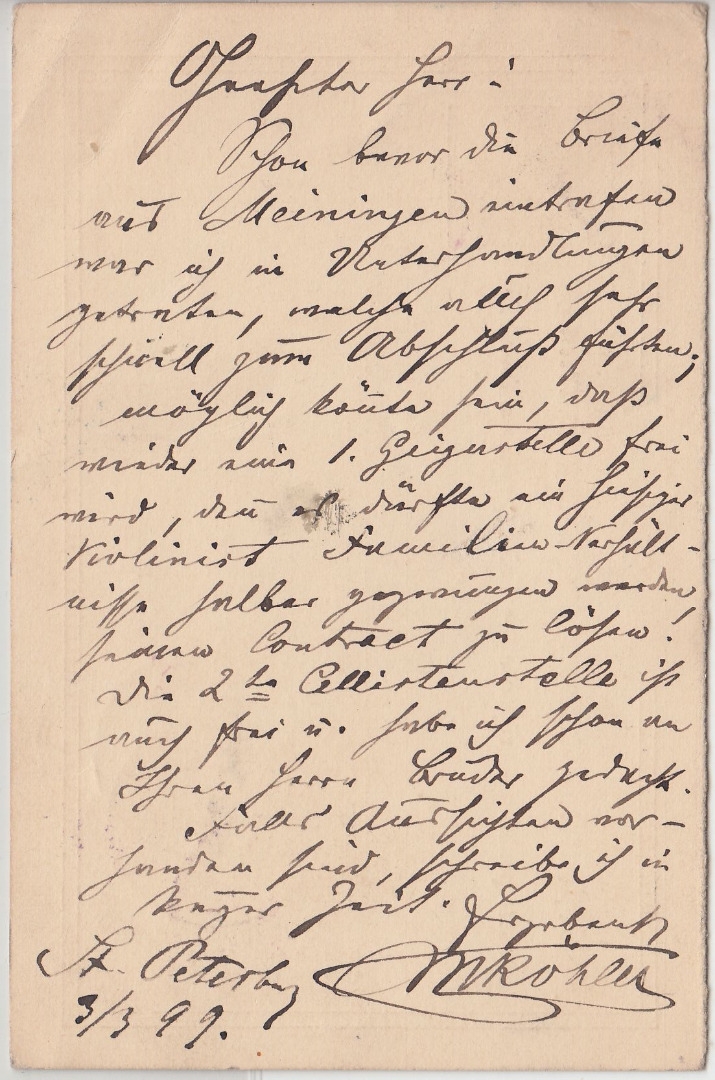 Geehrter Herr!
Schon bevor die Briefe
aus Meiningen eintrafen
war ich in Unterhandlungen
getreten, welche auch sehr
schnell zum Abschluß führten;
möglich könnte sein, daß
wieder eine 1. Geigerstelle frei
wird, denn es dürfte ein hiesiger
Violinist Familien-Verhält-
nisse halber gezwungen werden
seinen Contract zu lösen!
Die 2te Cellistenstelle ist
auch frei u. habe ich schon an
Ihren Herrn Bruder gedacht.
Falls Aussichten vor-
handen sind, schreibe ich in
kurzer Zeit. Ergebenst
St. Petersburg MKöhler
3/3 99.